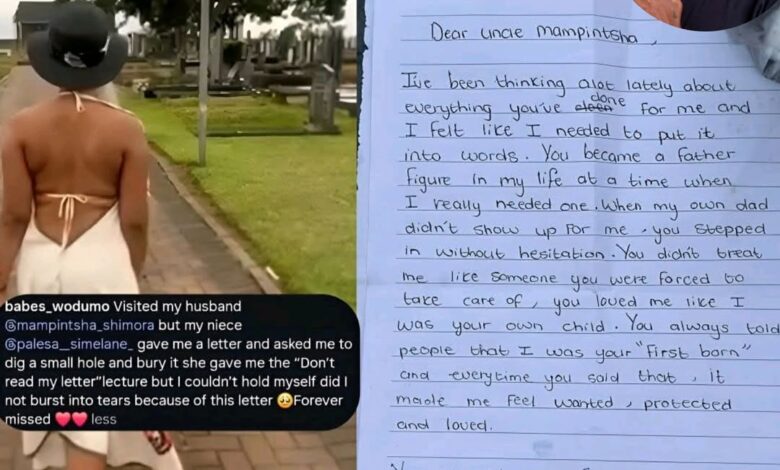 babes_wodumo Visited my husband
@mampintsha_shimora but my niece
@palesa__simelane_ gave me a letter and asked me to
dig a small hole and bury it she gave me the “Don’t
read my letter”lecture but I couldn’t hold myself did I
not burst into tears because of this letter 🥺Forever
missed ❤️❤️ less
Dear uncle mampintsha,
I've been thinking alot lately about
everything you've done for me and
I felt like I needed to put it
into words. You became a father
figure in my life at a time when
I really needed one. When my own dad
didn't show up for me, you stepped
in without hesitation. You didn't treat
me like someone you were forced to
take care of, you loved me like I
was your own child. You always told
people that I was your "First born"
and everytime you said that, it
made me feel wanted, protected
and loved.